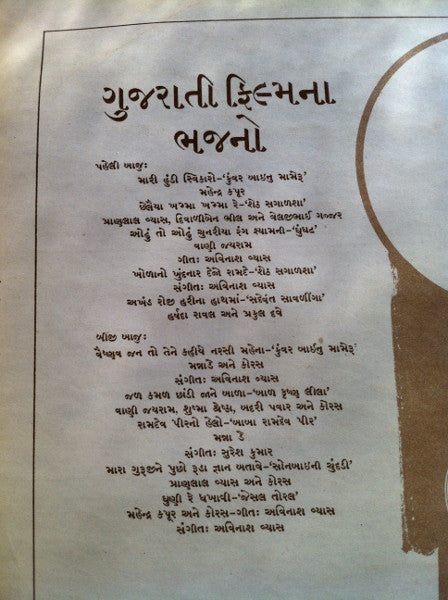 ગુજરાતી ફિલ્મના
ભજનો
પહેલી બાજુ:
મારી હુંડી સ્વિકારો-‘કુંવર બાઈનુ મામેરૂ’
મહેન્દ્ર કપૂર
છેલૈયા ખમ્મા ખમ્મા રે-‘શેઠ સગાળશા’
પ્રાણલાલ વ્યાસ, દિવાળીબેન ભીલ અને વેલજીભાઈ ગજ્જર
ઓઢું તો ઓઢું ચુનરીયા રંગ શ્યામની-‘ઘુંઘટ’
વાણી જયરામ
ગીત: અવિનાશ વ્યાસ
ખોળાનો ખુંદનાર દેજે રામટે-‘શેઠ સગાળશા’
સંગીત: અવિનાશ વ્યાસ
અખંડ રોજી હરીના હાથમાં-‘સદેવંત સાવળીંગા’
હર્ષદા રાવલ અને પ્રફુલ દવે
બીજી બાજુ:
વૈષ્ણવ જન તો તેને કહીયે નરસી મહેના-‘કુંવર બાઈનુ મામેરૂ’
મન્નાડે અને કોરસ
સંગીત: અવિનાશ વ્યાસ
જળ કમળ છાંડી જાને બાળા-‘બાળ કૃષ્ણ લીલા’
વાણી જયરામ, શુષ્મા શ્રેષ્ઠા, બદરી પવાર અને કોરસ
રામદેવ પીરનો હેલો-‘બાબા રામદેવ પીર’
મન્ના ડે
સંગીત: સુરેશ કુમાર
મારા ગુરૂજીને પુછો રૂડા જ્ઞાન બતાવે-‘સોનબાઈની ચુંદડી’
પ્રાણલાલ વ્યાસ અને કોરસ
ધુણી રે ધખાવી-‘જેસલ તોરલ’
મહેન્દ્ર કપૂર અને કોરસ-ગીત: અવિનાશ વ્યાસ
સંગીત: અવિનાશ વ્યાસ